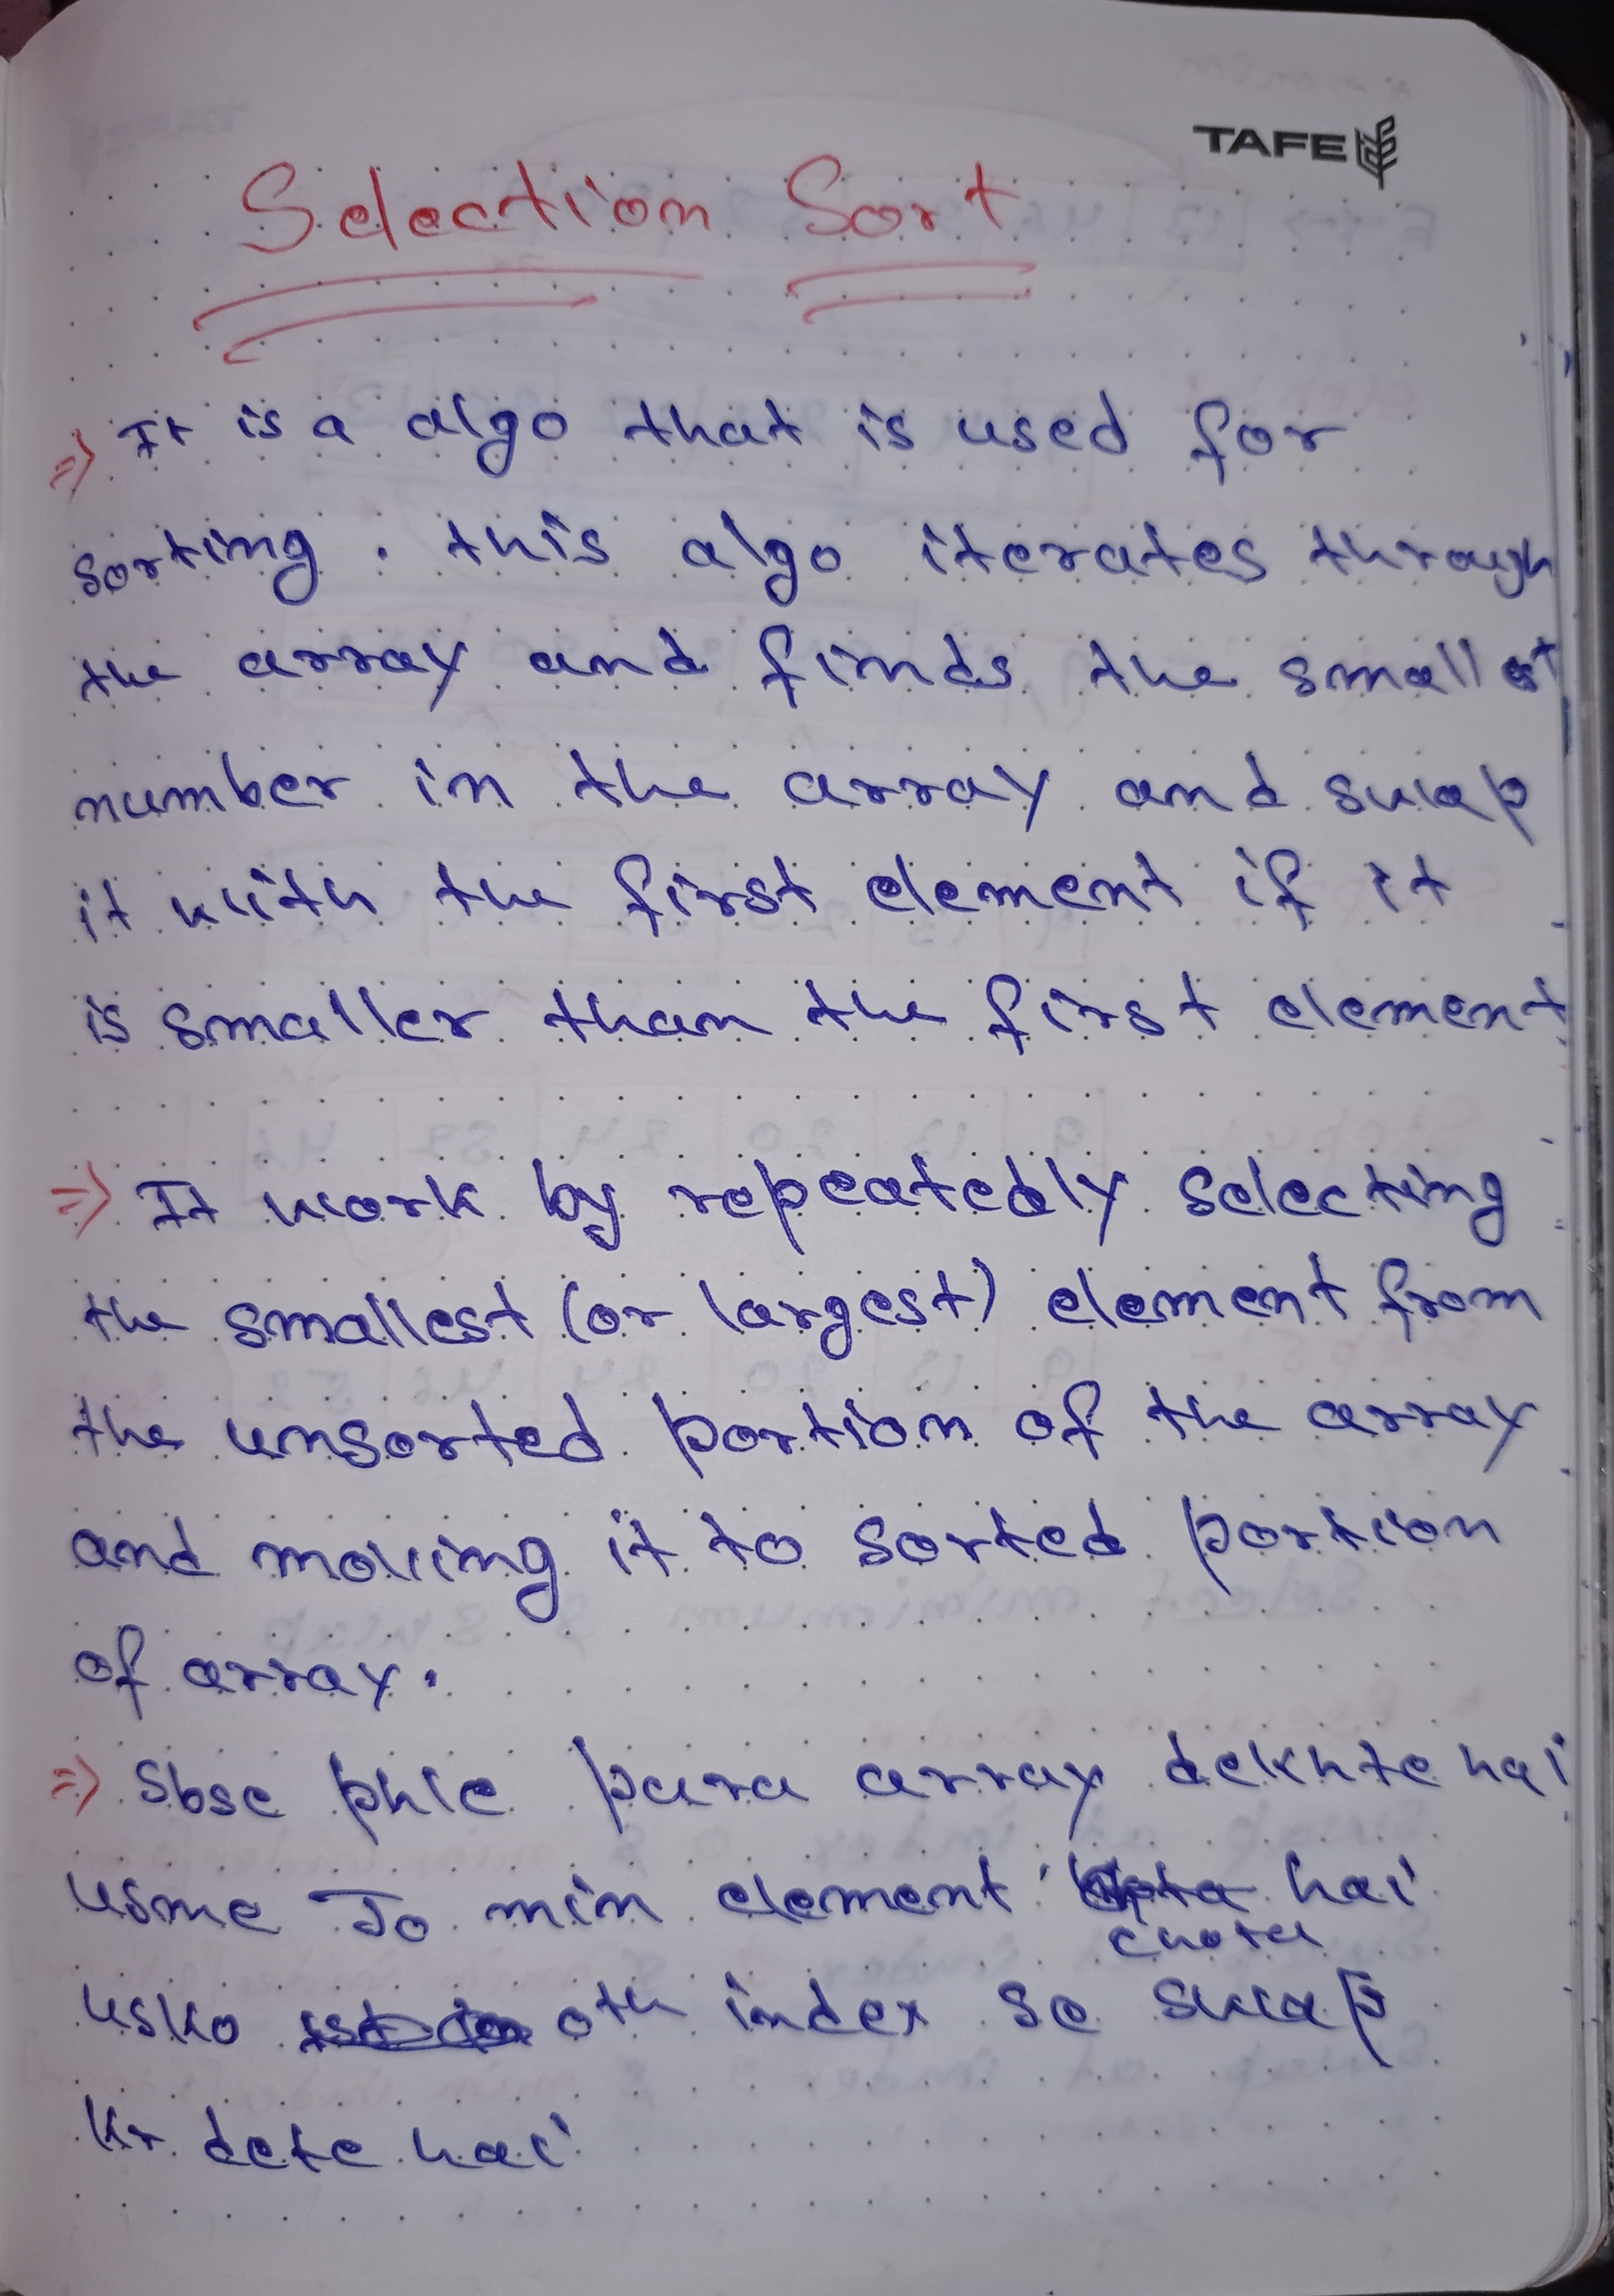 TAFE
Selection Sort
=> It is a algo that is used for
sorting. this algo iterates through
the array and finds the smallest
number in the array and swap
it with the first element if it
is smaller than the first element
=> It work by repeatedly selecting
the smallest (or largest) element from
the unsorted portion of the array
and moving it to sorted portion
of array.
=> Sbse phle pura array dekhte hai
usme Jo min element hai
chota
usko 0th index se swap
kr dete hai